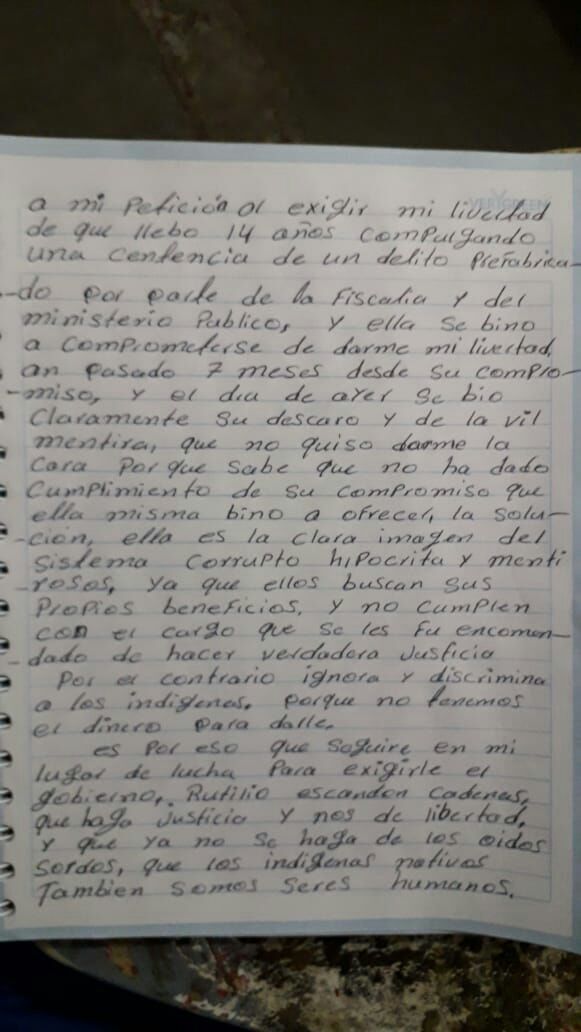 VERYGREEN
a mi Petición al exigir mi livertad
de que llebo 14 años compurgando
una centencia de un delito Prefabrica-
-do por parte de la Fiscalia y del
ministerio Publico, y ella se bino
a comprometerse de darme mi livertad,
an pasado 7 meses desde su compro-
-miso, y el dia de ayer se bio
Claramente su descaro y de la vil
mentira, que no quiso darme la
Cara Porque sabe que no ha dado
Cumplimiento de su compromiso que
ella misma bino a ofrecer, la solu-
-ción, ella es la clara imagen del
Sistema corrupto hipocrita y menti
-rosos, ya que ellos buscan sus
Propios beneficios, y no cumplen
con el cargo que se les fu encomen-
-dado de hacer verdadera Justicia
Por el contrario ignora y discrimina
a los indigenas, porque no tenemos
el dinero para darle.
es por eso que seguire en mi
lugar de lucha Para exigirle el
gobierno, Rutilio escandon cadenas,
que haga Justicia y nos de libertad,
y que ya no se haga de los oidos
sordos, que los indigenas nativos
Tambien somos seres humanos.